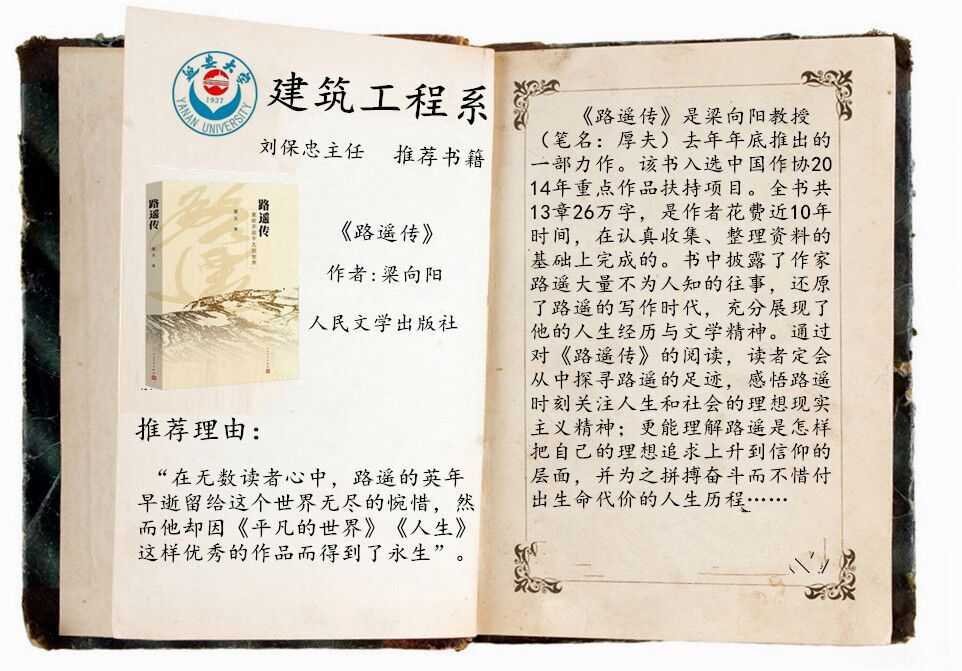 延安大学
1937
YANAN UNIVERSITY
建筑工程系
刘保忠主任 推荐书籍
路遥传
厚夫 著
路遥传
重新解读平凡的世界
厚夫 著
《路遥传》
作者:梁向阳
人民文学出版社
推荐理由:
“在无数读者心中,路遥的英年
早逝留给这个世界无尽的惋惜,然
而他却因《平凡的世界》《人生》
这样优秀的作品而得到了永生”。
《路遥传》是梁向阳教授
(笔名:厚夫)去年年底推出的
一部力作。该书入选中国作协20
14年重点作品扶持项目。全书共
13章26万字,是作者花费近10年
时间,在认真收集、整理资料的
基础上完成的。书中披露了作家
路遥大量不为人知的往事,还原
了路遥的写作时代,充分展现了
他的人生经历与文学精神。通过
对《路遥传》的阅读,读者定会
从中探寻路遥的足迹,感悟路遥
时刻关注人生和社会的理想现实
主义精神;更能理解路遥是怎样
把自己的理想追求上升到信仰的
层面,并为之拼搏奋斗而不惜付
出生命代价的人生历程……